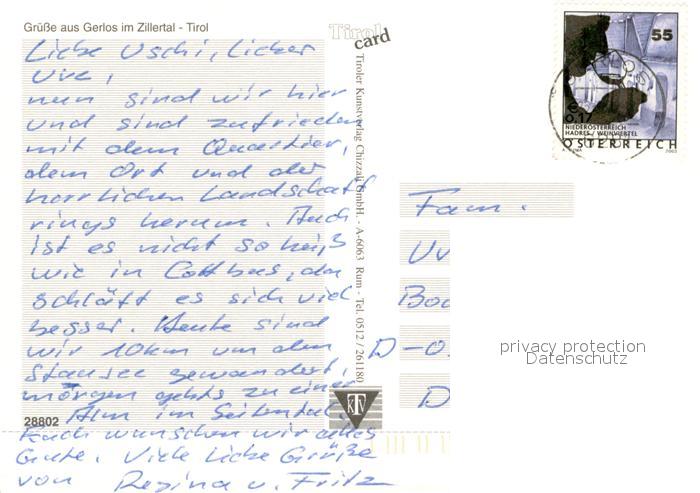 Grüße aus Gerlos im Zillertal - Tirol
Liebe Uschi, lieber
Uve,
nun sind wir hier
und sind zufrieden
mit dem Quartier,
dem Ort und der
herrlichen Landschaft
rings herum. Auch
ist es nicht so heiß
wie in Cottbus, da
schläft es sich viel
besser. Heute sind
wir 10km um den
Stausee gewandert,
morgen gehts zu einer
Alm im Seitental.
Euch wünschen wir alles
Gute. Viele liebe Grüße
von Regina u. Fritz
28802
Tirol
card
Tiroler Kunstverlag Chizzali GmbH. - A-6063 Rum - Tel. 0512 / 261180
KTV
55
0.17
NIEDERÖSTERREICH
HADRES / WEINVIERTEL
ÖSTERREICH
2002
Fam.
Uv
D-0
D
privacy protection
Datenschutz